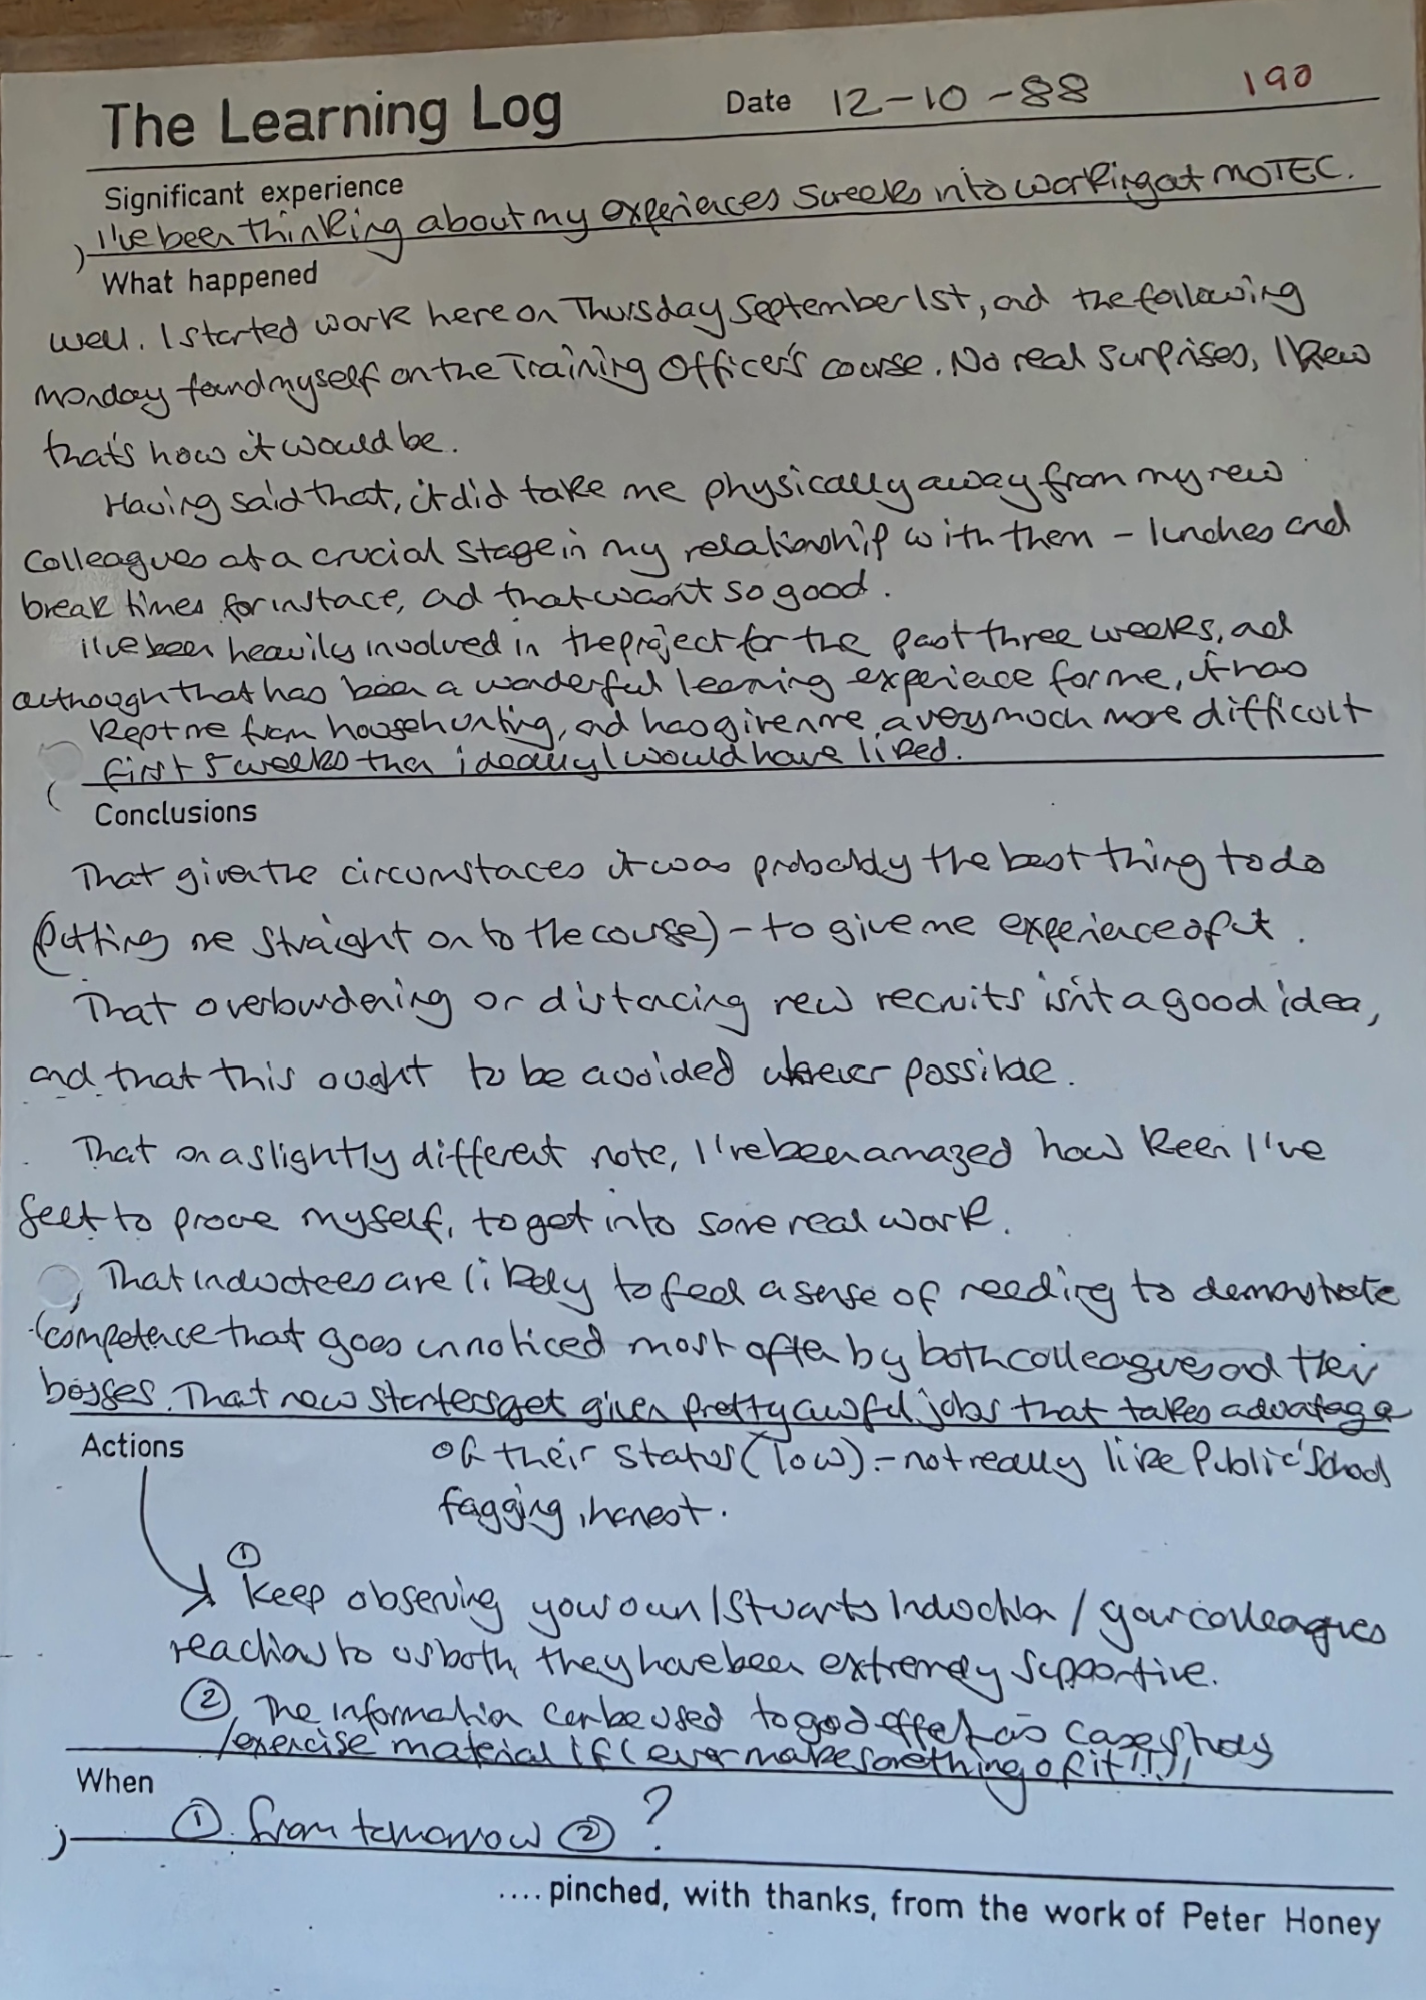 The Learning Log Date 12-10-88 190
Significant experience
I've been thinking about my experiences 5 weeks into working at MOTEC.
What happened
Well. I started work here on Thursday September 1st, and the following
Monday found myself on the Training Officer's course. No real surprises, I knew
that's how it would be.
Having said that, it did take me physically away from my new
colleagues at a crucial stage in my relationship with them - lunches and
break times for instace, ad that wasn't so good.
I've been heavily involved in the project for the past three weeks, ad
although that has been a wonderful learning experience for me, it has
kept me from househunting, and has given me a very much more difficult
first 5 weeks than ideally I would have liked.
Conclusions
That given the circumstaces it was probably the best thing to do
(putting me straight on to the course) - to give me experience of it.
That overburdening or distancing new recruits isn't a good idea,
and that this ought to be avoided wherever possible.
That on a slightly different note, I've been amazed how keen I've
felt to prove myself, to get into some real work.
That inductees are likely to feel a sense of needing to demonstrate
competence that goes unnoticed most often by both colleagues ad their
bosses. That new starters get given pretty awful jobs that takes advantage
Actions of their status (low). - not really like Public School
fagging, honest.
①
Keep observing your own / Stuarts Induction / your colleagues
reactions to us both, they have been extremely supportive.
② The information can be used to good effect as case study
/exercise material if I ever make something of it!!!!
When
① from tomorrow ② ?
.... pinched, with thanks, from the work of Peter Honey